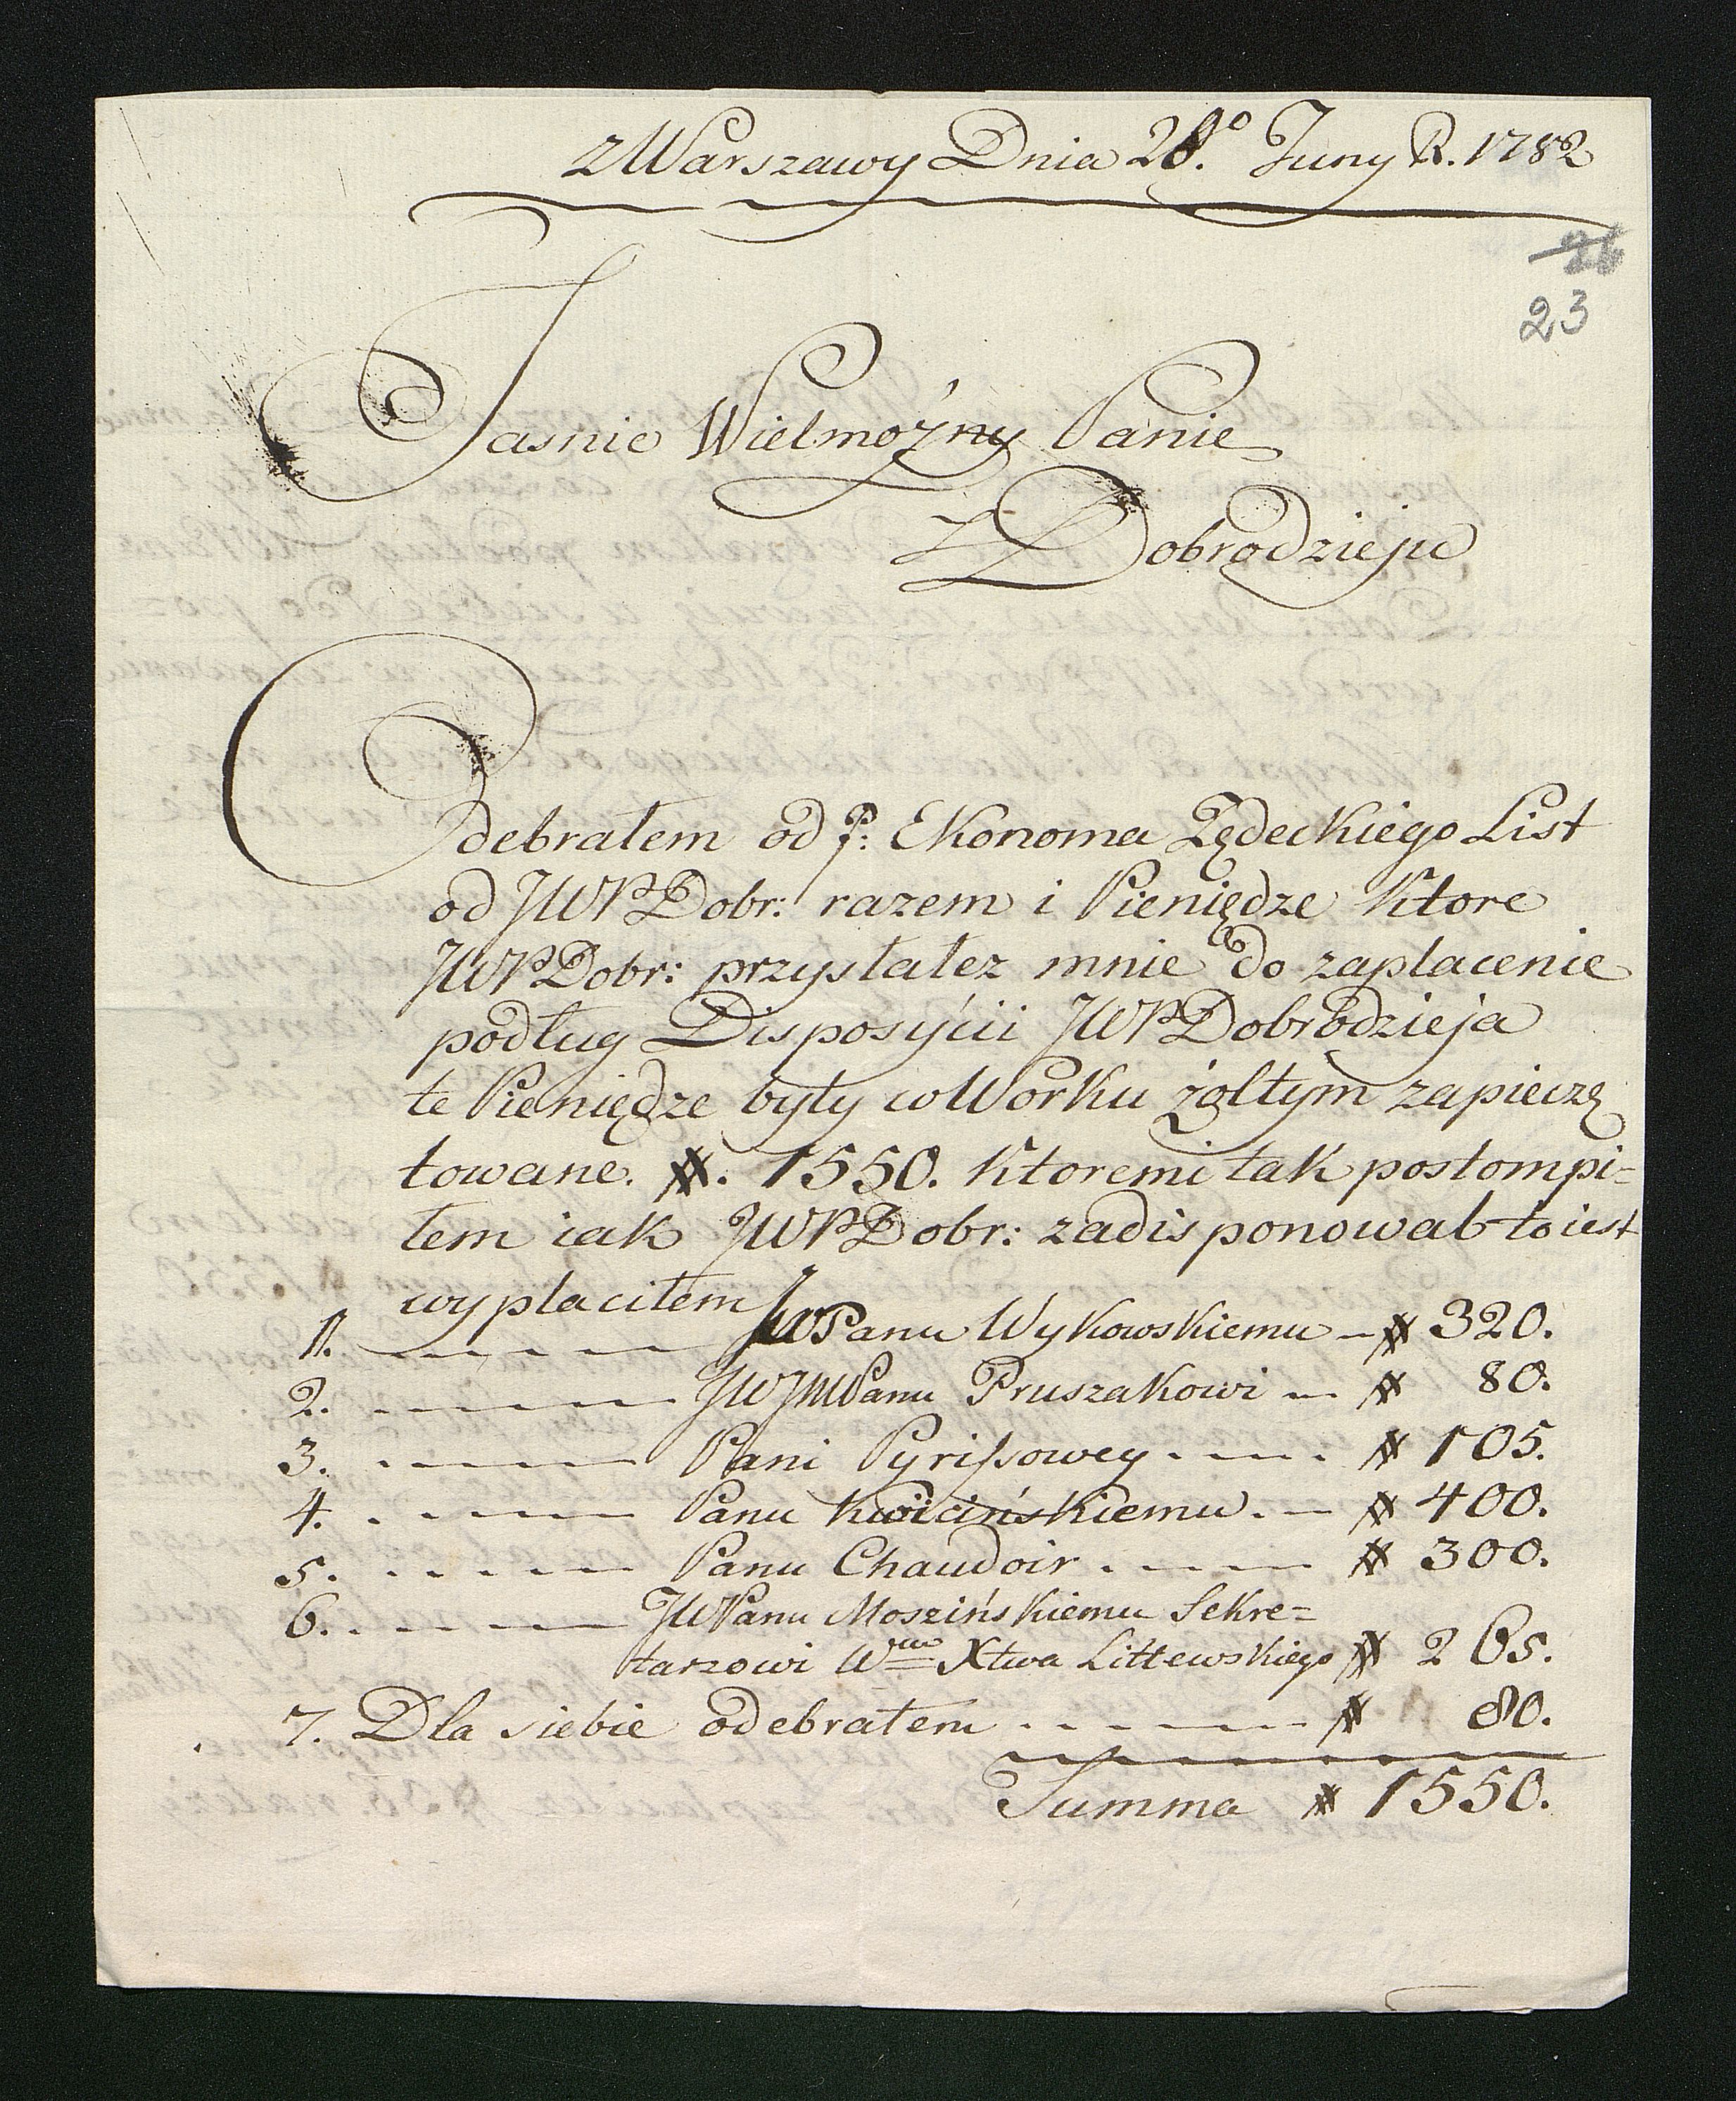 z Warszawy Dnia 28.° Juny R. 1782
26
23
Jasnie Wielmożny Panie
Dobrodzieju
Odebrałem od P: Ekonoma Zędeckiego List
od JWPDobr: razem i Pieniędze Ktore
JWPDobr: przysłałez mnie do zapłacenie
podług Disposÿcii JWPDobrodzieja
te Pieniędze były w Worku żołtym zapieczę
towane. #. 1550. Ktoremi tak postompi=
łem iak JWPDobr: zadisponował to iest
wypłaciłem
1. JWPanu Wykowskiemu # 320.
2. JWJMPanu Pruszakowi # 80.
3. Pani Pyrissowey # 105.
4. Panu Kwicińskiemu # 400.
5. Panu Chaudoir # 300.
6. JWPanu Moszińskiemu Sekre=
tarzowi W. Xtwa Littewskiego # 265.
7. Dla siebie odebrałem # 80.
Summa # 1550.